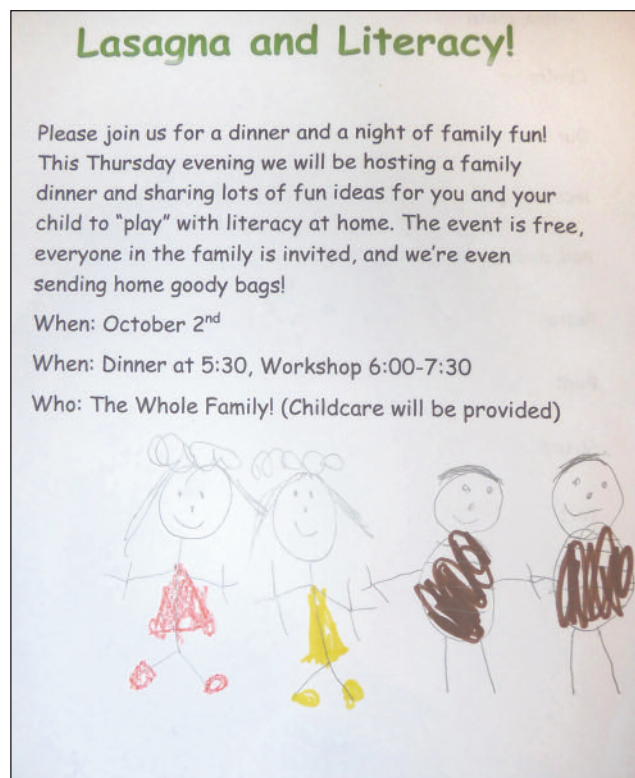 Lasagna and Literacy!
Please join us for a dinner and a night of family fun!
This Thursday evening we will be hosting a family
dinner and sharing lots of fun ideas for you and your
child to “play” with literacy at home. The event is free,
everyone in the family is invited, and we’re even
sending home goody bags!
When: October 2nd
When: Dinner at 5:30, Workshop 6:00-7:30
Who: The Whole Family! (Childcare will be provided)